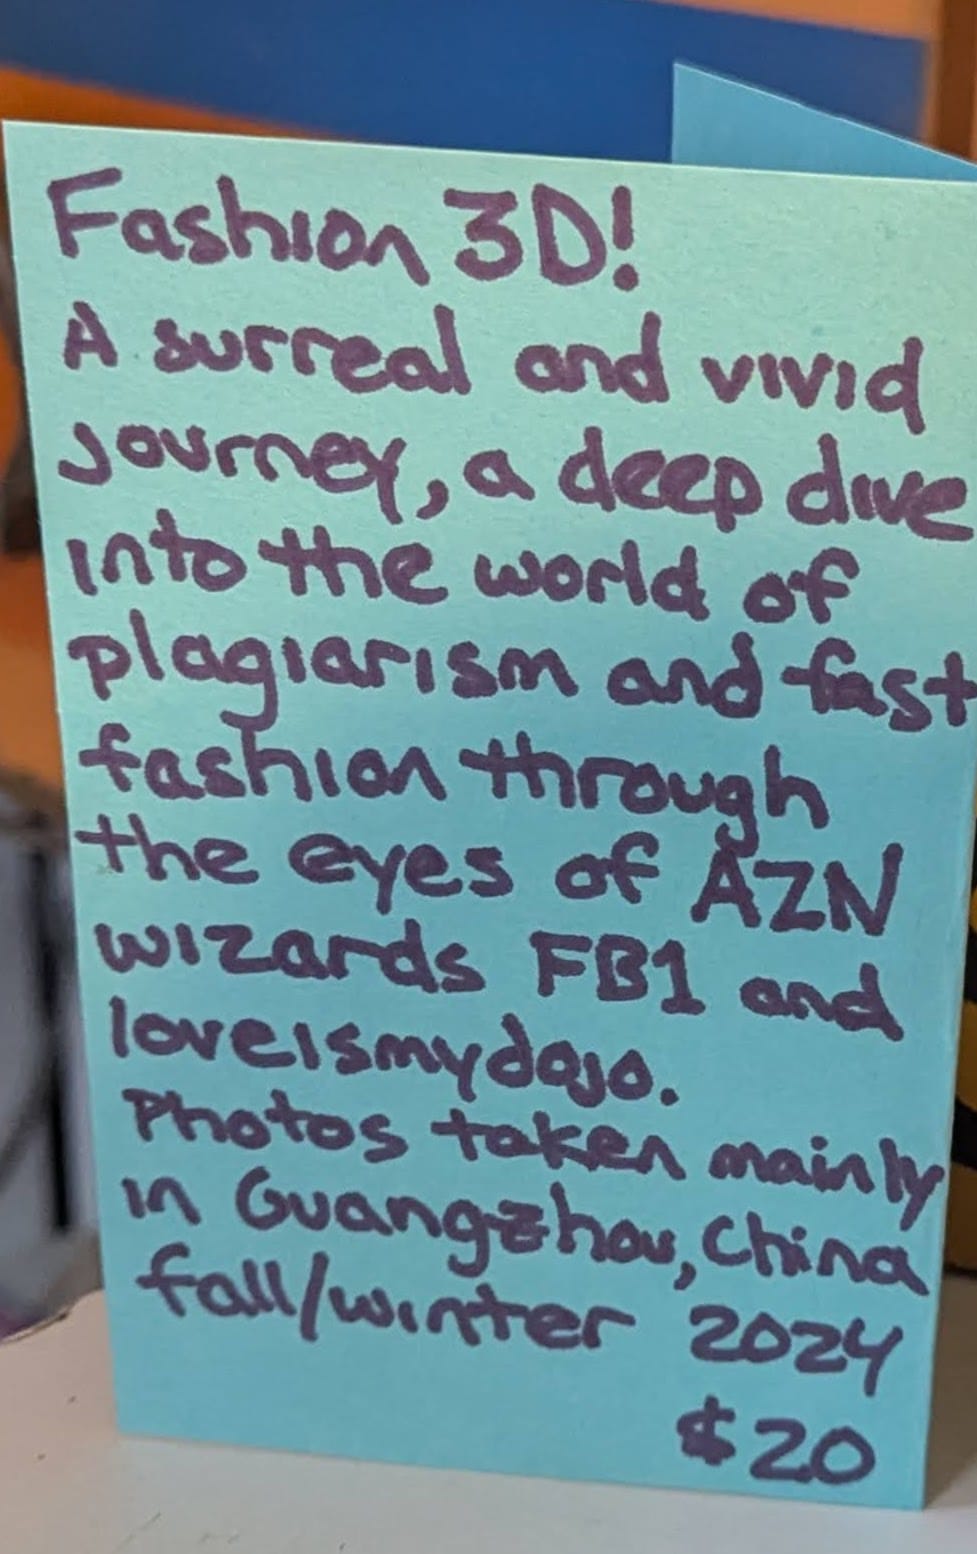 Fashion 3D!
A surreal and vivid
journey, a deep dive
into the world of
plagiarism and fast
fashion through
the eyes of AZN
wizards FB1 and
loveismydojo.
Photos taken mainly
in Guangzhou, China
fall/winter 2024
$20